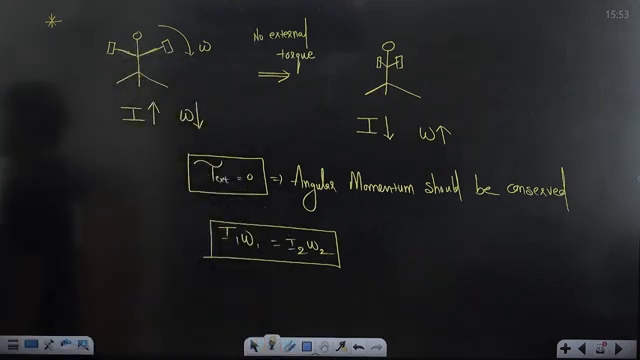 15:53
*
ω
No external
torque
⇒
I↑ ω↓
I↓ ω↑
τext = 0 ⇒ Angular Momentum should be conserved
I₁ω₁ = I₂ω₂